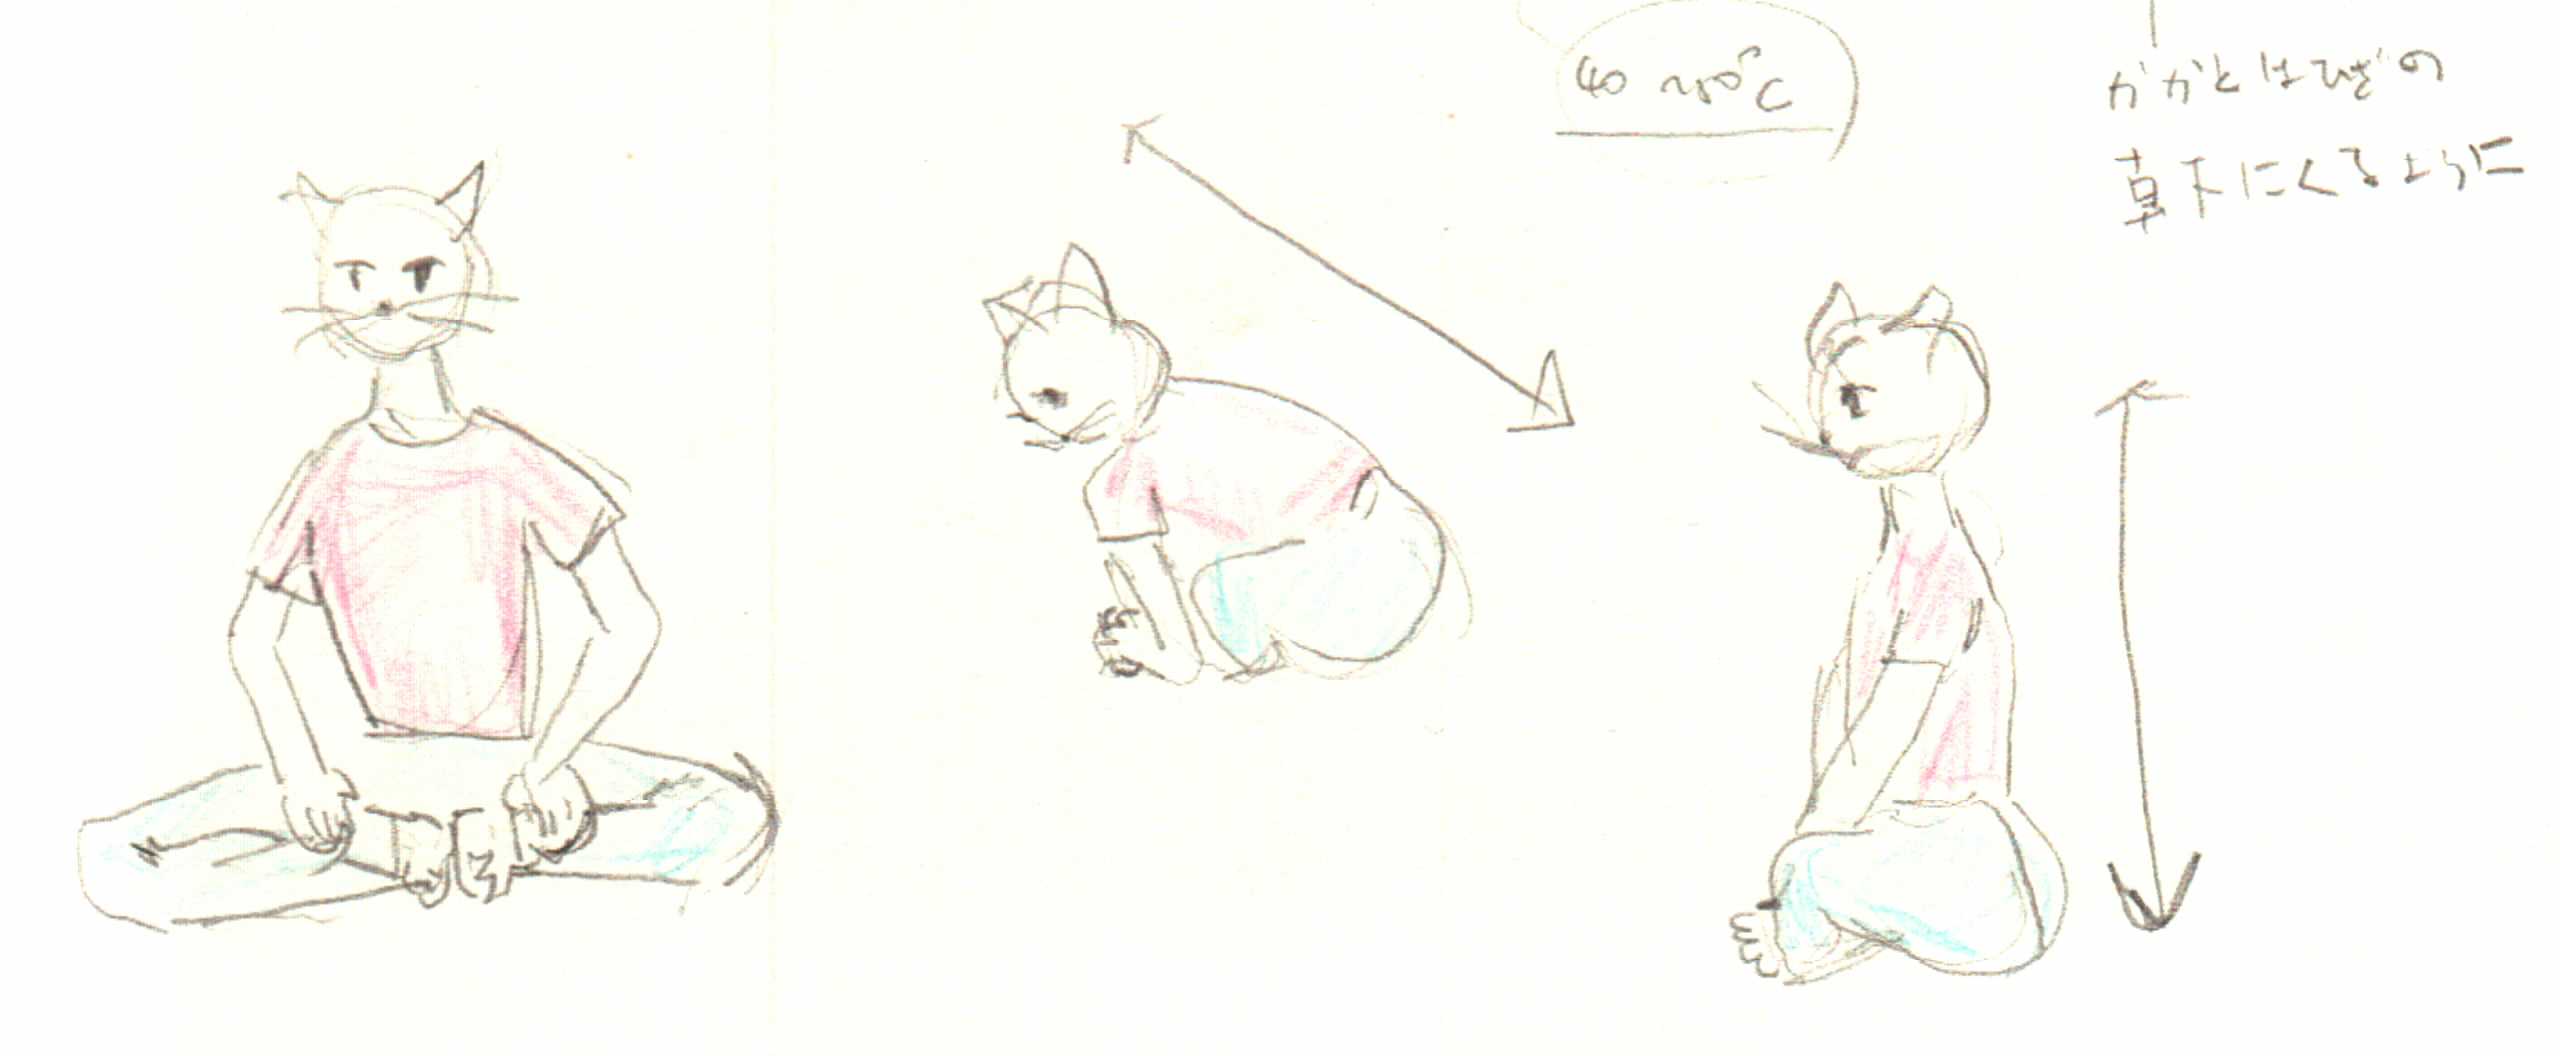 40 ~50°C
かかとはひざの
真下にくるように